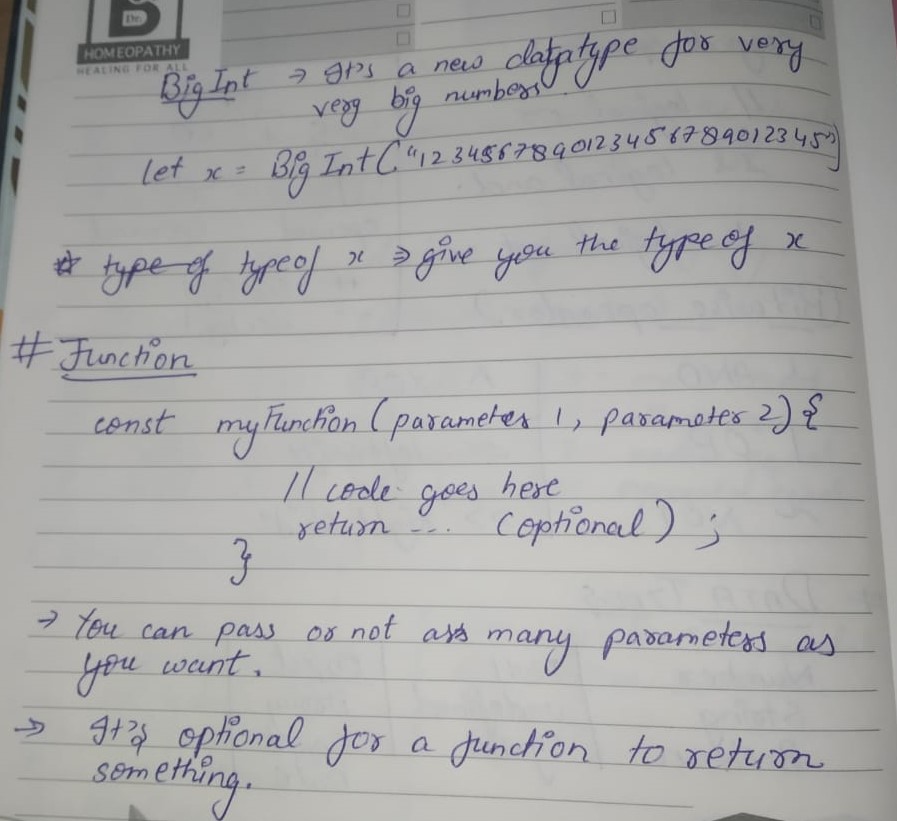 Dr.
HOMEOPATHY
HEALING FOR ALL
Big Int → It's a new datatype for very
very big numbers.
let x = Big Int("1234567890123456789012345")
# typeof x ⇒ give you the type of x
# Function
const myFunction (parameter 1, parameter 2) {
// code goes here
return ... (optional) ;
}
→ You can pass or not as many parameters as
you want.
→ It's optional for a function to return
something.